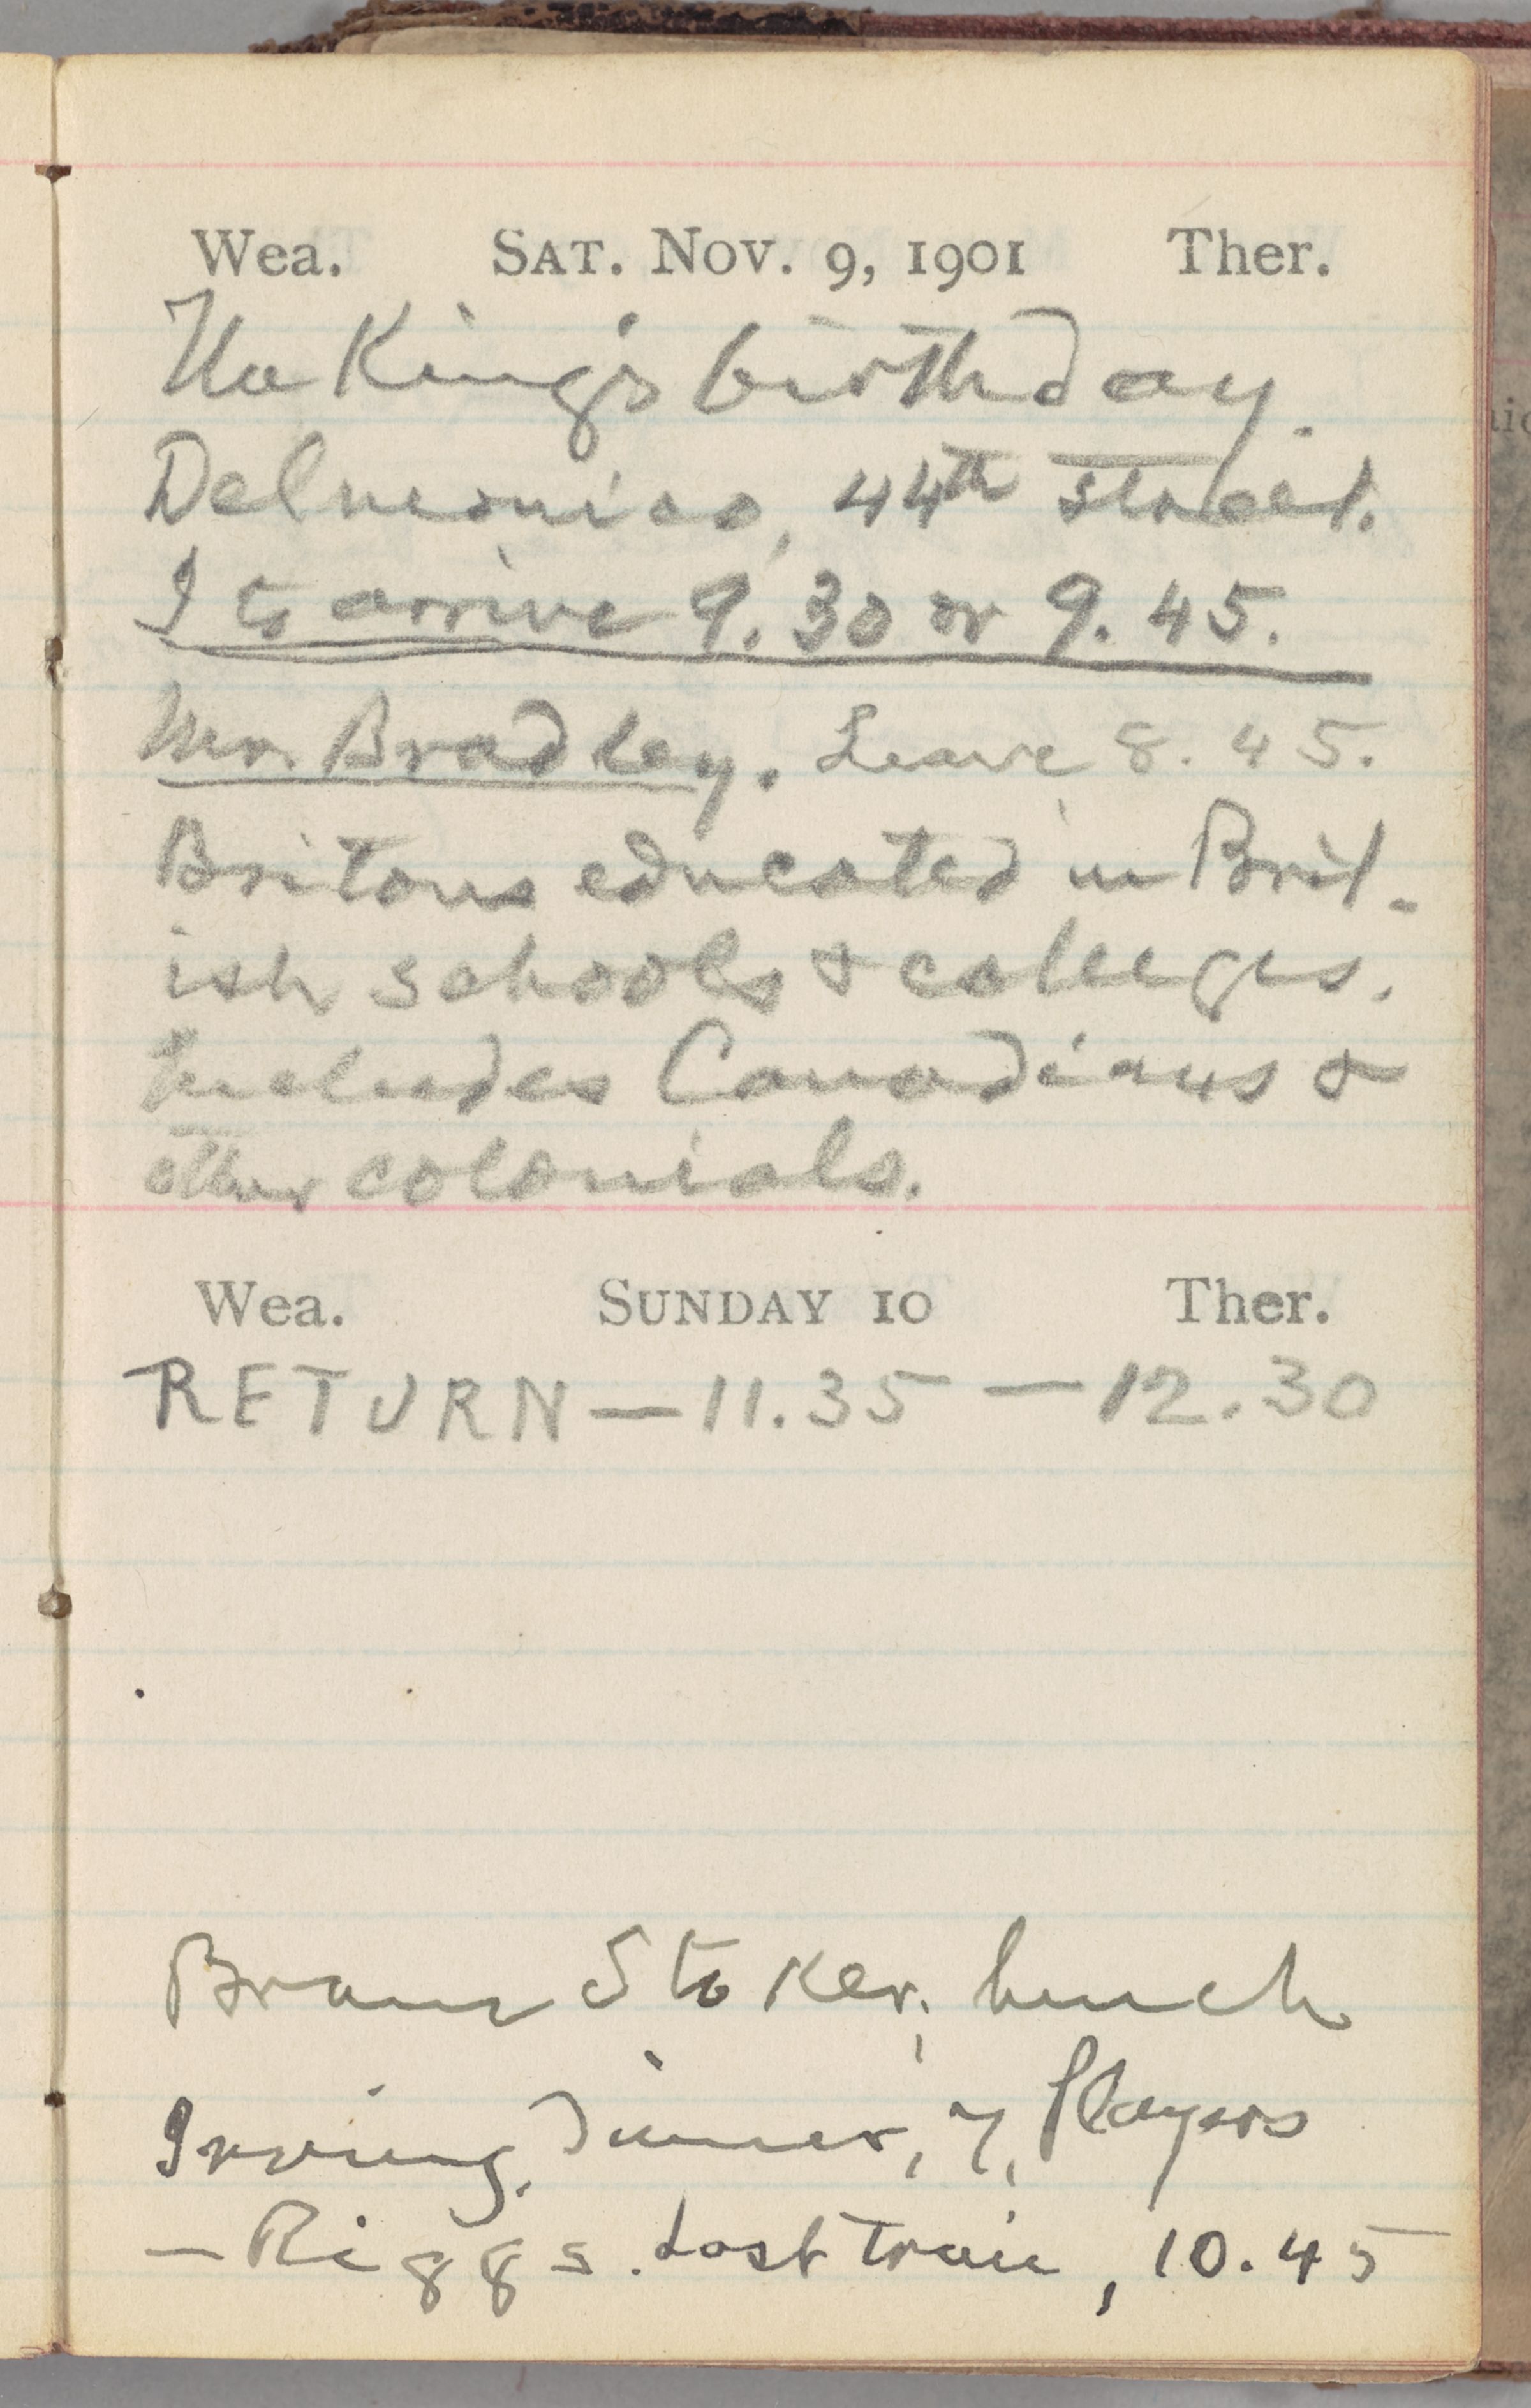 Wea. SAT. NOV. 9, 1901 Ther.
The King's birthday.
Delmonico, 44th street.
I to arrive 9.30 or 9.45.
Mr. Bradley. Leave 8.45.
Britons educated in Brit-
ish schools & colleges.
Includes Canadians &
other colonials.
Wea. SUNDAY 10 Ther.
RETURN — 11.35 — 12.30
Bram Stoker, lunch
Irving, dinner, 7, Players
— Riggs. Last train, 10.45